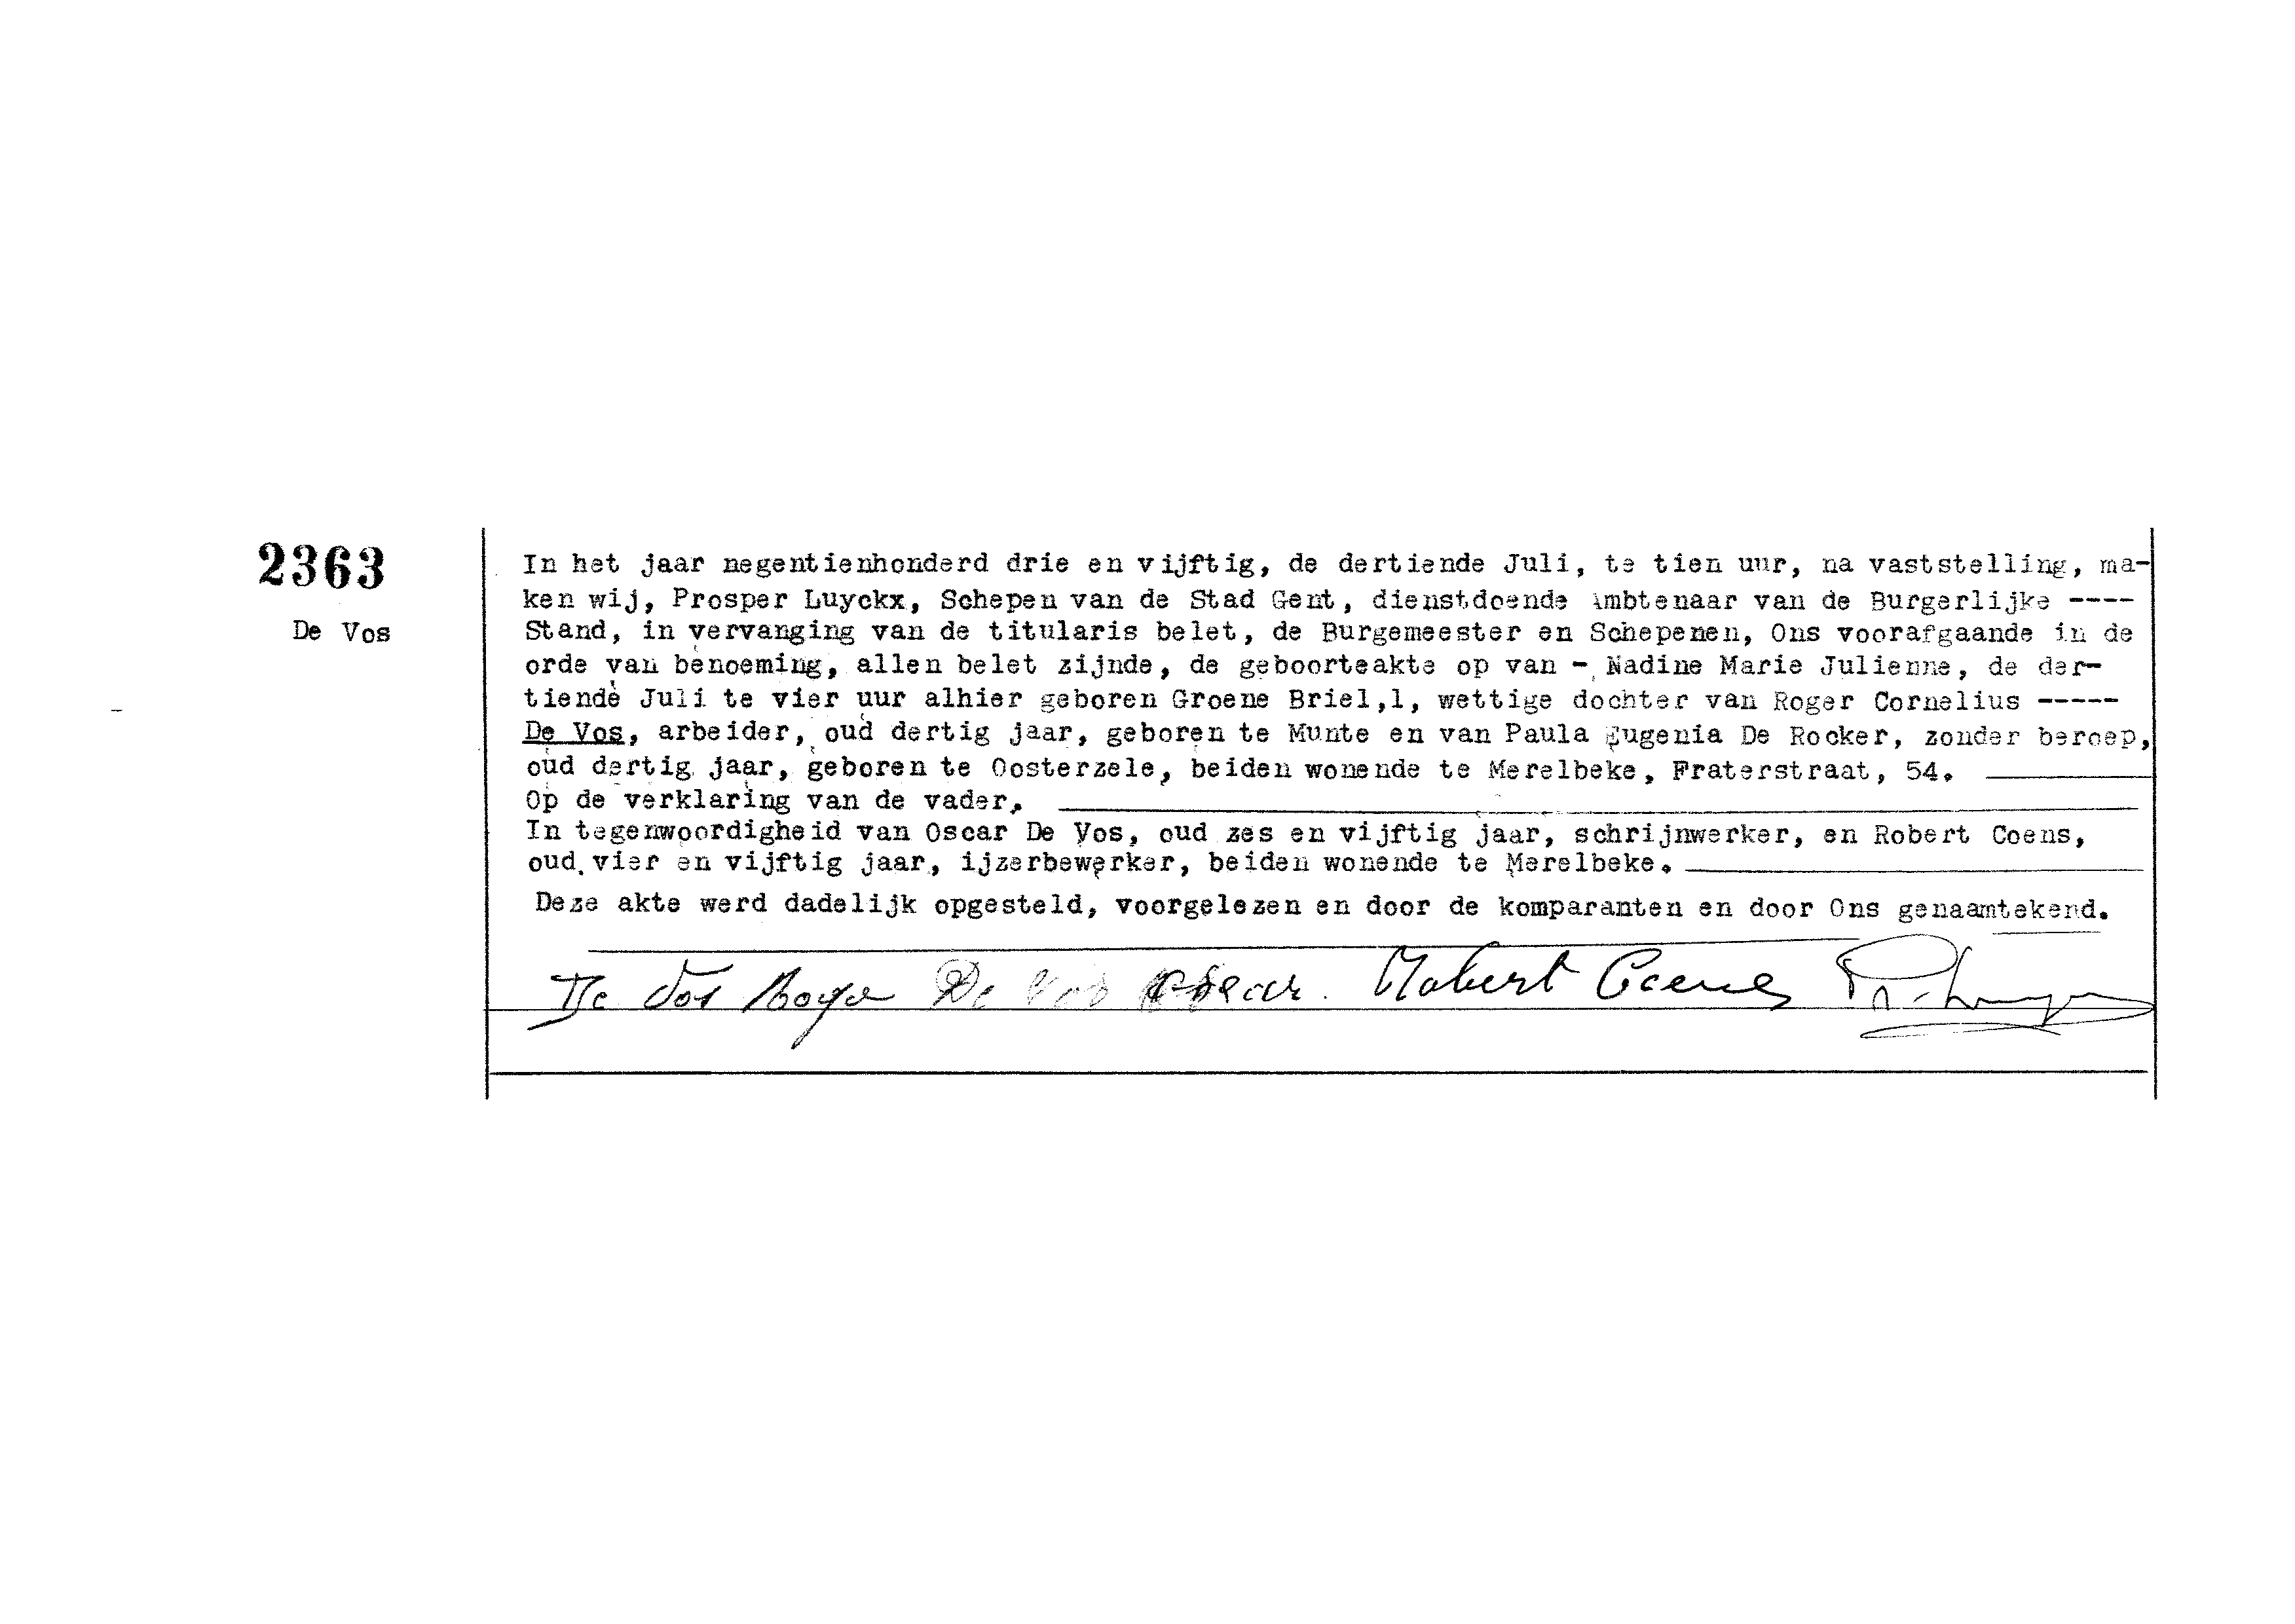 2363
De Vos
In het jaar negentienhonderd drie en vijftig, de dertiende Juli, te tien uur, na vaststelling, ma-
ken wij, Prosper Luyckx, Schepen van de Stad Gent, dienstdoende Ambtenaar van de Burgerlijke ----
Stand, in vervanging van de titularis belet, de Burgemeester en Schepenen, Ons voorafgaande in de
orde van benoeming, allen belet zijnde, de geboorteakte op van - Nadine Marie Julienne, de der-
tiende Juli te vier uur alhier geboren Groene Briel,1, wettige dochter van Roger Cornelius -----
De Vos, arbeider, oud dertig jaar, geboren te Munte en van Paula Eugenia De Rocker, zonder beroep,
oud dertig jaar, geboren te Oosterzele, beiden wonende te Merelbeke, Fraterstraat, 54.
Op de verklaring van de vader.
In tegenwoordigheid van Oscar De Vos, oud zes en vijftig jaar, schrijnwerker, en Robert Coens,
oud vier en vijftig jaar, ijzerbewerker, beiden wonende te Merelbeke.
Deze akte werd dadelijk opgesteld, voorgelezen en door de komparanten en door Ons genaamtekend.
De Vos Roger De Vos Oscar. Robert Coens